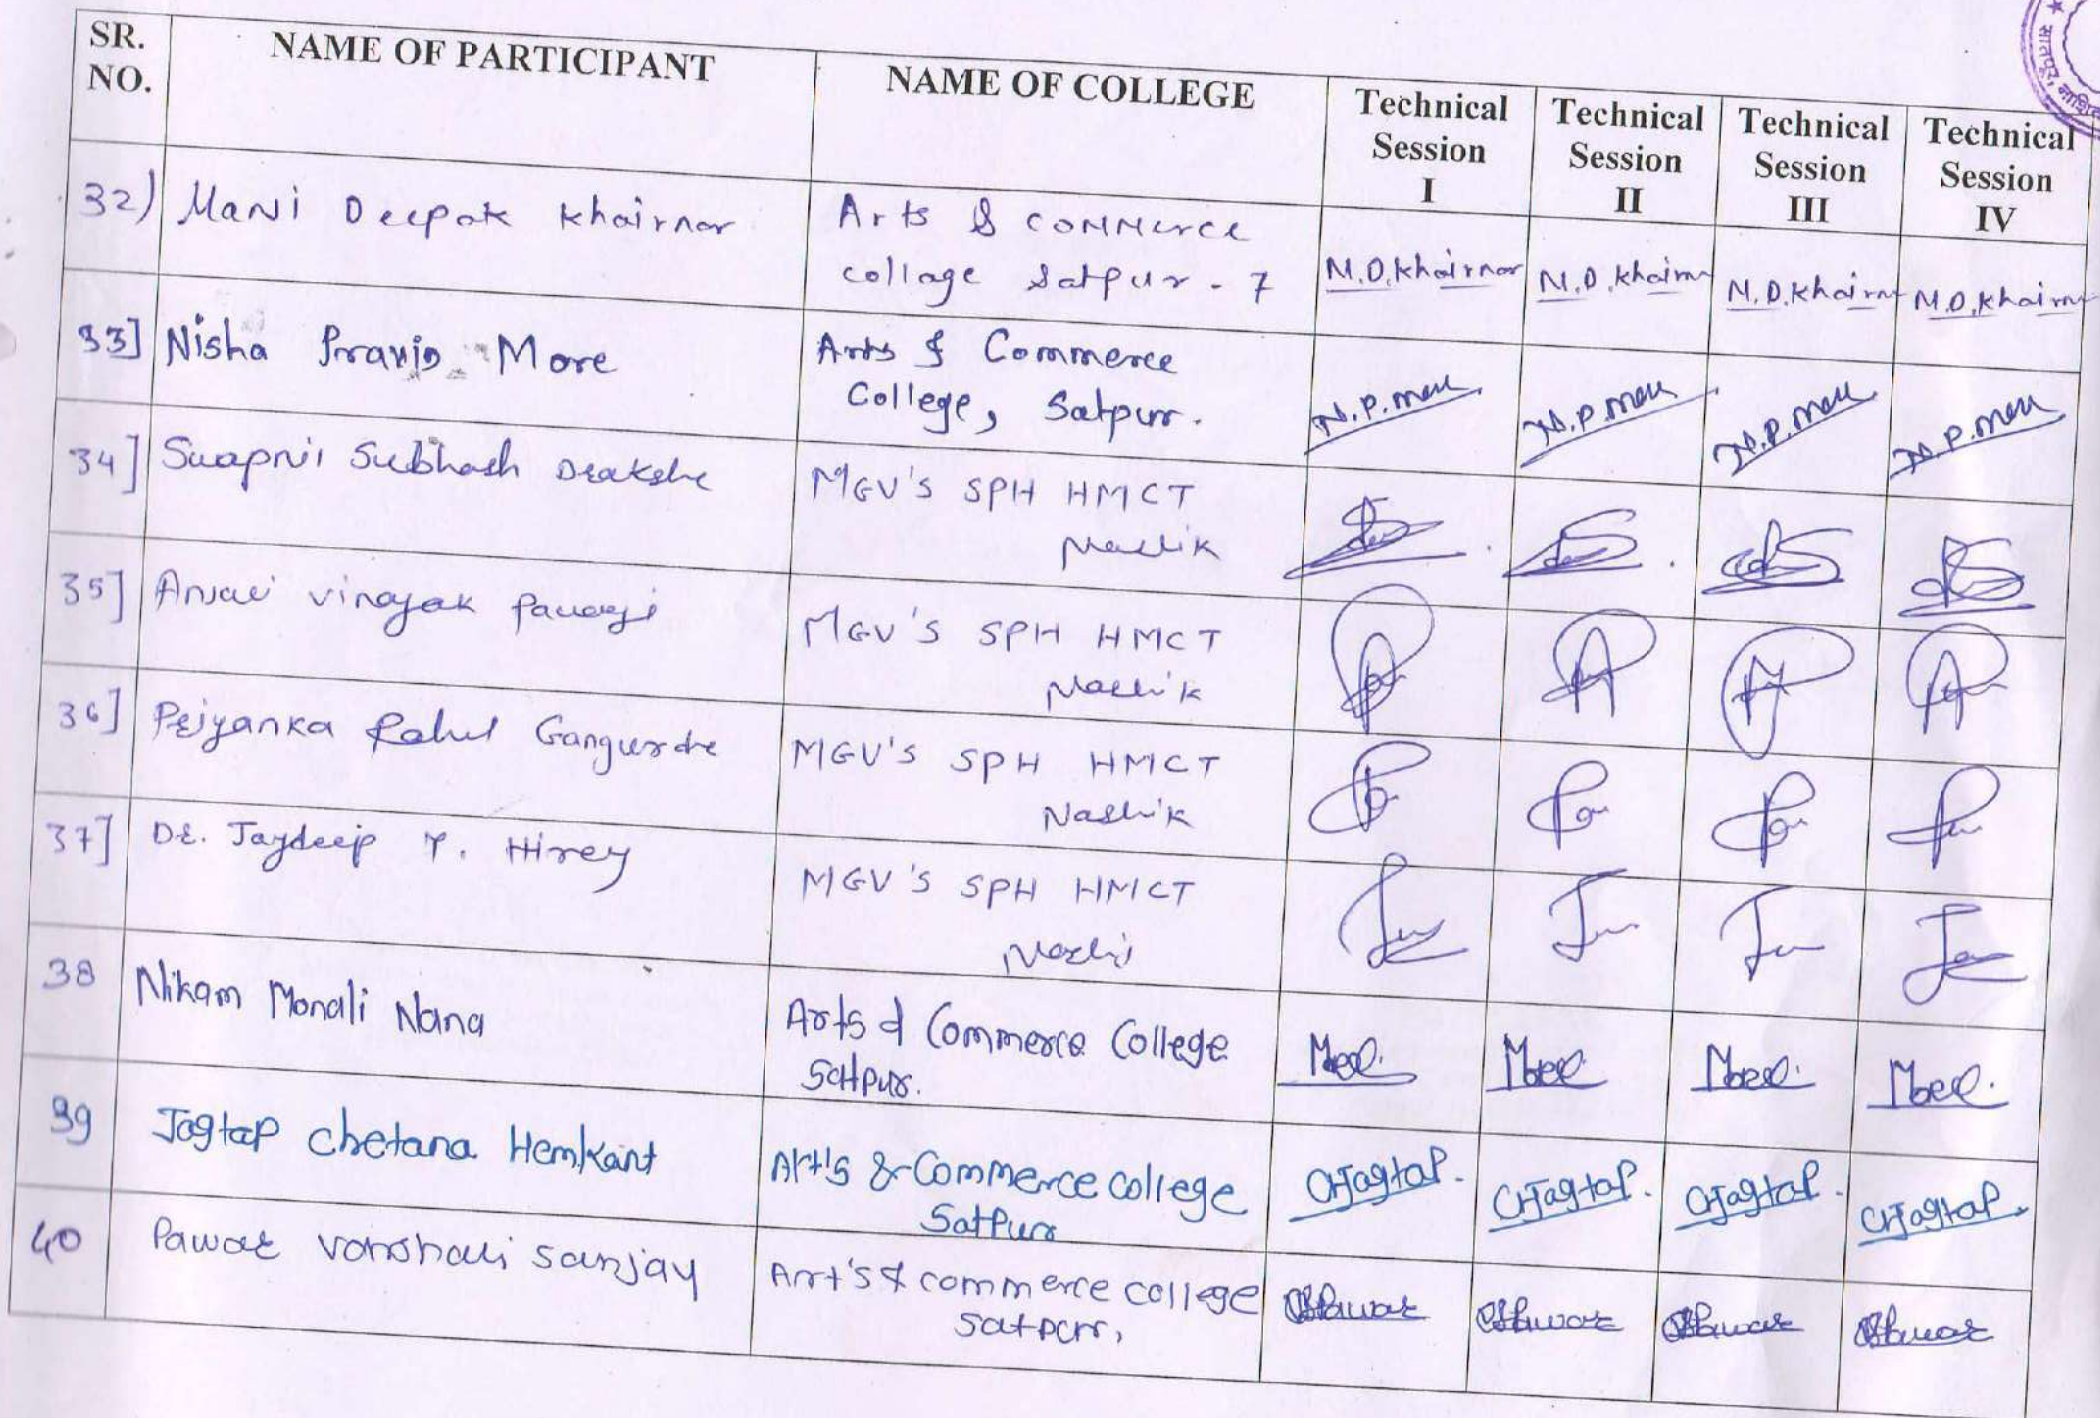 SR. NO. NAME OF PARTICIPANT NAME OF COLLEGE Technical Session I Technical Session II Technical Session III Technical Session IV
सातपूर, नाशिक
32) Mani Deepak Khairnar Arts & Commerce
collage Satpur - 7 M.D.Khairnar M.D.Khairnar M.D.Khairnar M.D.Khairnar
33] Nisha Pravin More Arts & Commerce
College, Satpur. N.P.More N.P.More N.P.More N.P.More
34] Swapnil Subhash Drakshe MGV'S SPH HMCT
Nashik
35] Anjali Vinayak MGV'S SPH HMCT
Nashik
36] Priyanka Rahul Gangurde MGV'S SPH HMCT
Nashik
37] Dr. Jaydeep T. Hirey MGV'S SPH HMCT
Nashi
38 Nikam Monali Nana Arts & Commerce College
Satpur.
39 Jagtap Chetana Hemkant Art's & Commerce College
Satpur CHJagtap. CHJagtap. CHJagtap. CHJagtap.
40 Pawar Varshali Sanjay Art's & commerce college
Satpur,